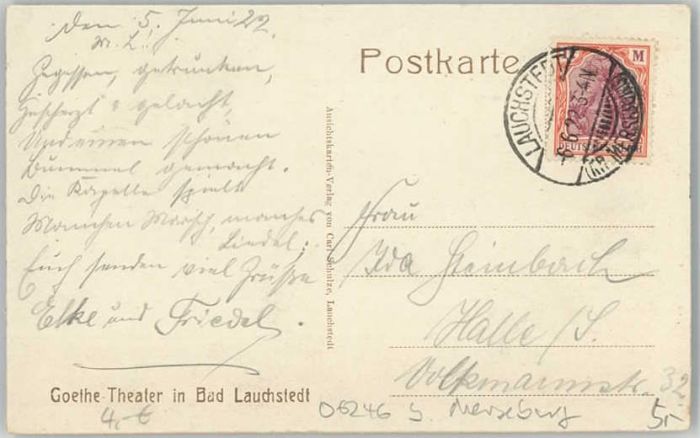 den 5. Juni 22.
M. L.!
Gegessen, getrunken,
Gescherzt u gelacht,
Und einen schönen
Bummel gemacht.
Die Kapelle spielt
Manchen Marsch, manches
Liedel;
Euch senden viel Grüsse
Elke und Friedel.
Goethe-Theater in Bad Lauchstedt
4,-€
Ansichtskarten-Verlag von Carl Schulze, Lauchstedt
Postkarte
M
DEUTSCHES
LAUCHSTEDT
6.6.22. 3-4N
(KR. MERSEBURG)
Frau
Ida Steinbach
Halle /S.
Volkmannstr. 32
06246 b. Merseburg
5,-